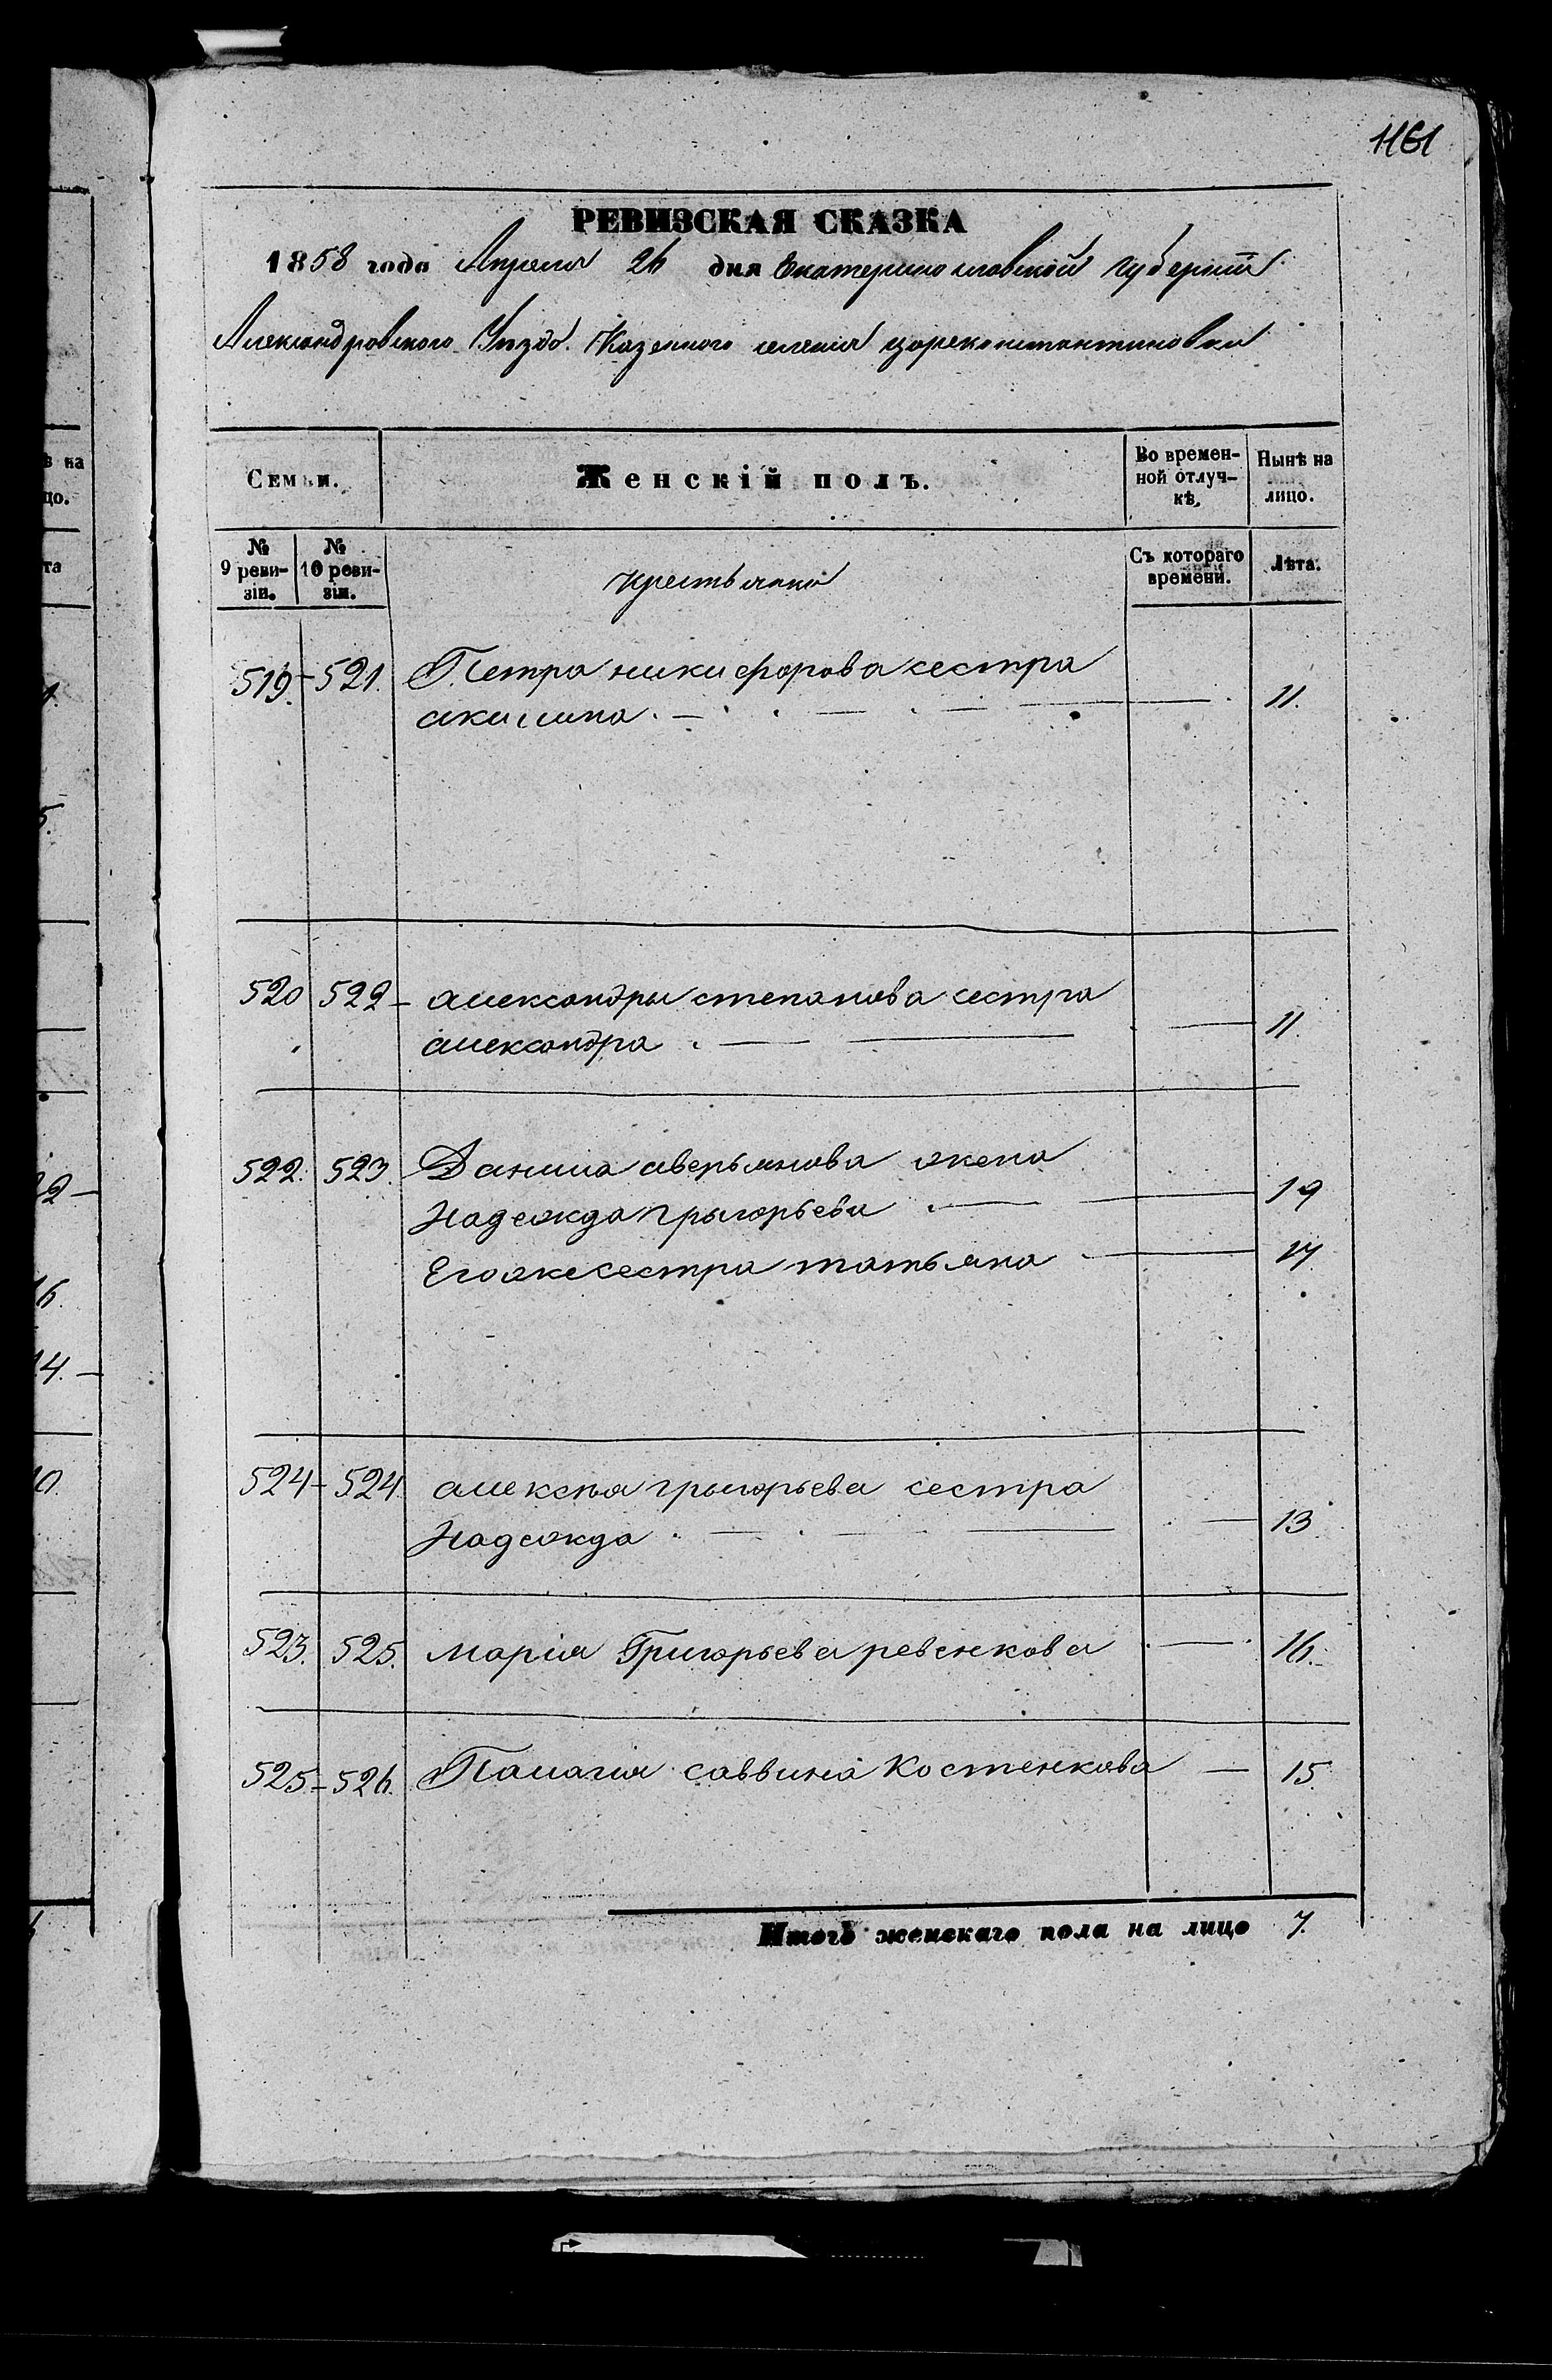 1161
РЕВИЗСКАЯ СКАЗКА
1858 года Апреля 26 дня Екатеринославской губерніи
Александровского Уѣзда. Казенного селенія цареконстантиновки
Семьи.
Женскій полъ.
Во времен-
ной отлуч-
кѣ.
Нынѣ на
лицо.
№
9 реви-
зіи.
№
10 реви-
зіи.
крестьяне
Съ котораго
времени.
Лѣта.
519. - 521. Петра никифорова сестра
акилина. — 11.
520 522 - александры степанова сестра
александра . — 11.
522. 523. Данила аверьянова жена
Надежда грыгорьева . — 19
Его же сестра татьяна — 17
524 - 524. алексѣя грыгорьева сестра
Надежда . — 13
523. 525. марія Григорьева ревенкова . — . 16.
525 - 526. Палагия саввина Костенкова — 15.
Итогъ женскаго пола на лицо 7.